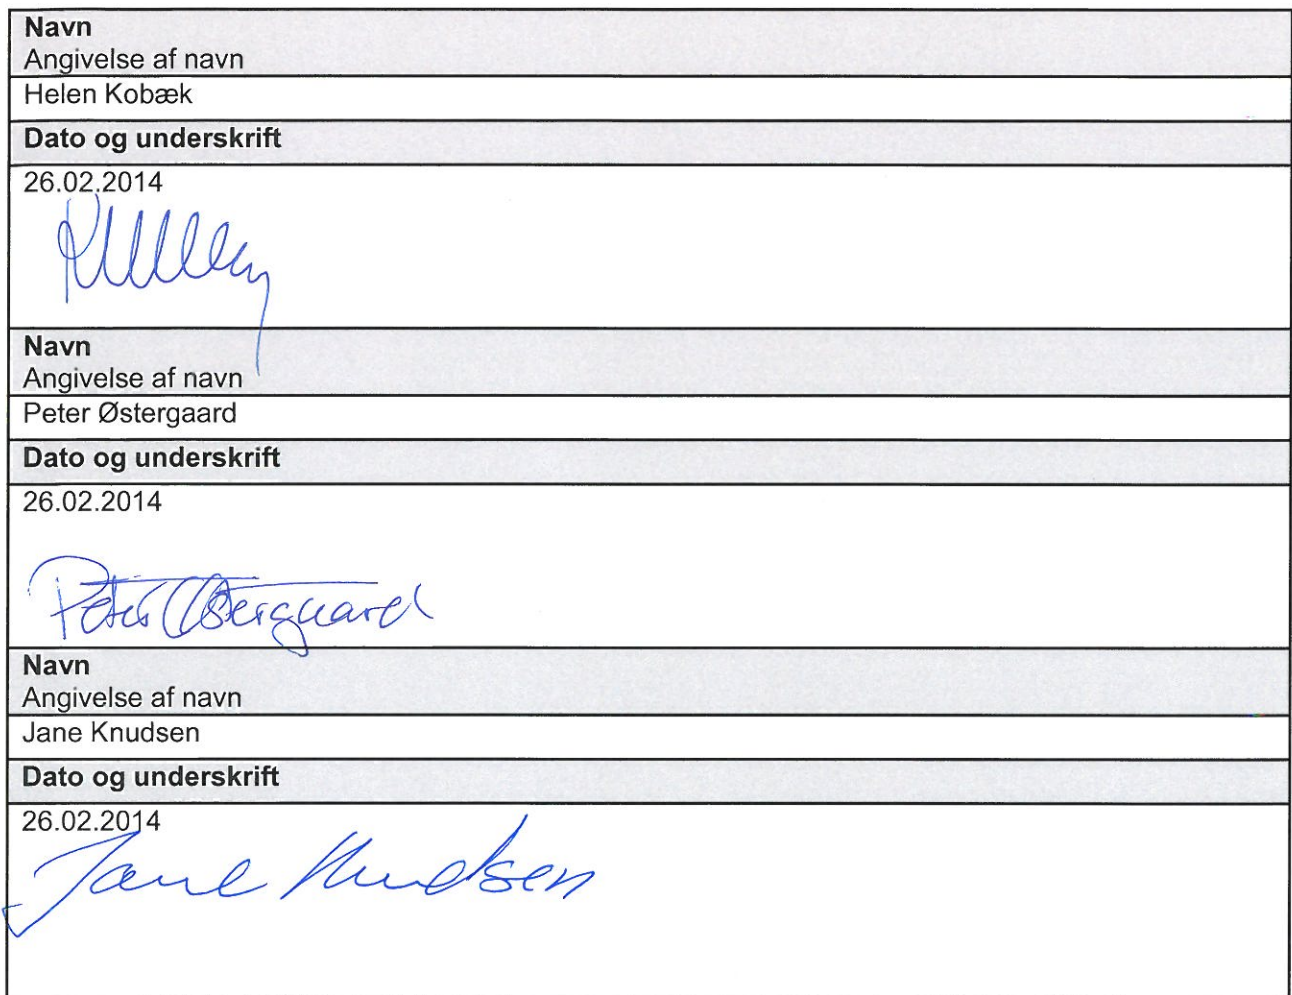 Navn
Angivelse af navn
Helen Kobæk
Dato og underskrift
26.02.2014
Navn
Angivelse af navn
Peter Østergaard
Dato og underskrift
26.02.2014
Peter Østergaard
Navn
Angivelse af navn
Jane Knudsen
Dato og underskrift
26.02.2014
Jane Knudsen